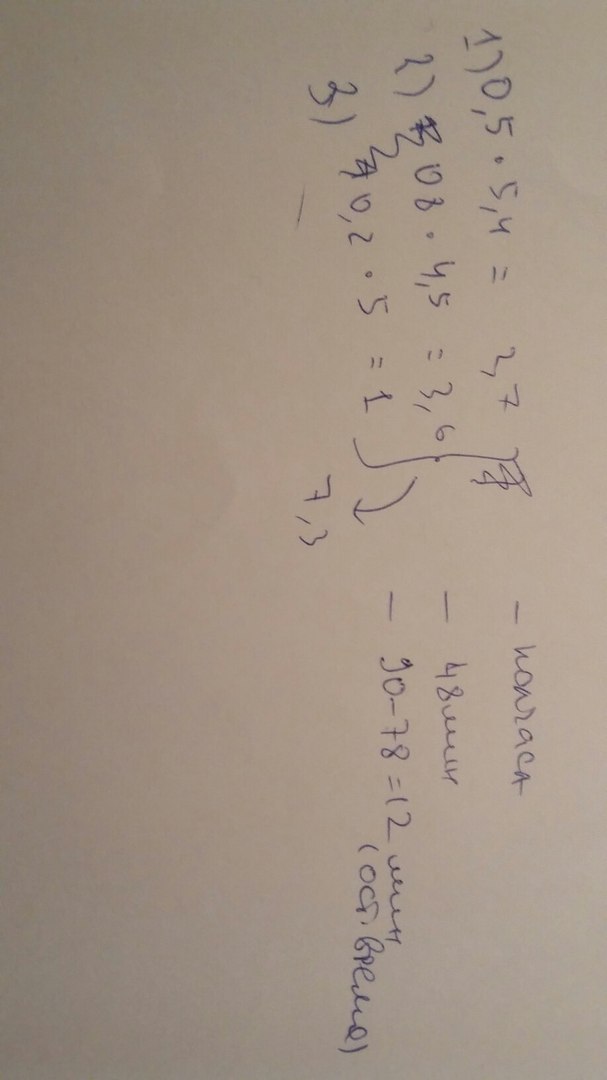 1) 0,5 · 5,4 = 2,7 – полчаса
2) 08 · 4,5 = 3,6 – 48 мин
3) 0,2 · 5 = 1 – 90 – 78 = 12 мин
7,3 (ост. время)